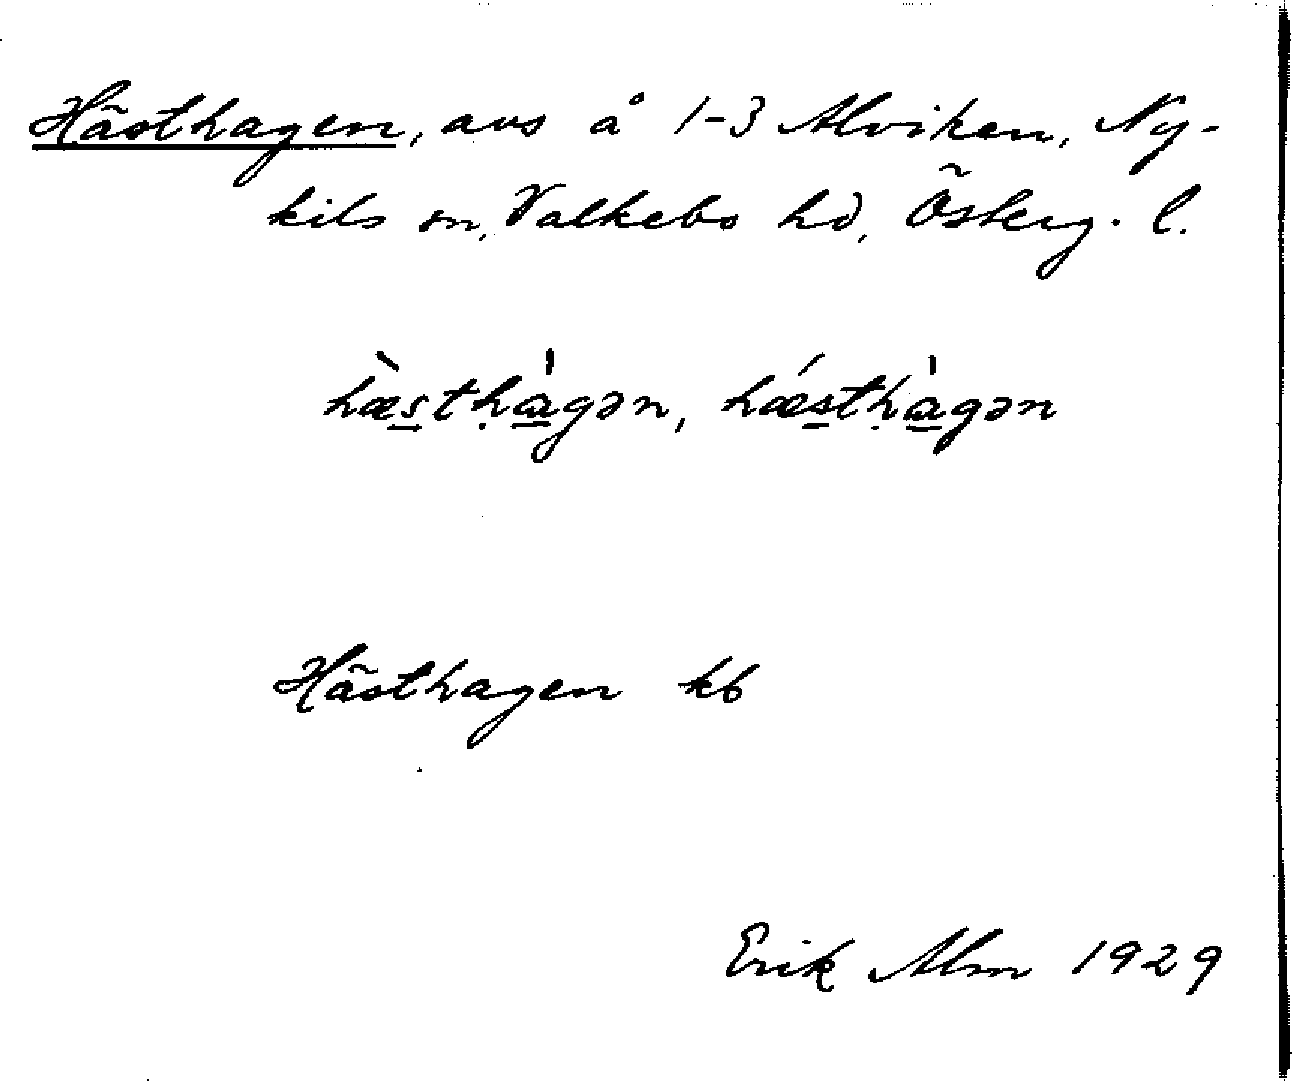 Hästhagen, avs å 1-3 Alviken, Ny-
kils sn, Valkebo hd, Österg. l.
hæ̀s̲tḥa̲̍gən, hǽs̲tḥa̲̍gən
Hästhagen kb
Erik Alm 1929